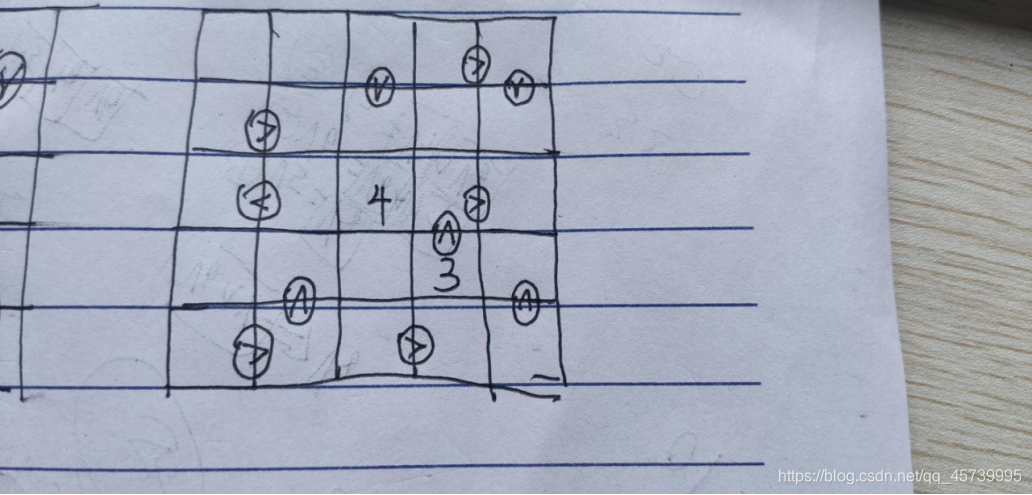 >
∨ ∨
>
< 4 >
∧
3
∧ ∧
> >
https://blog.csdn.net/qq_45739995